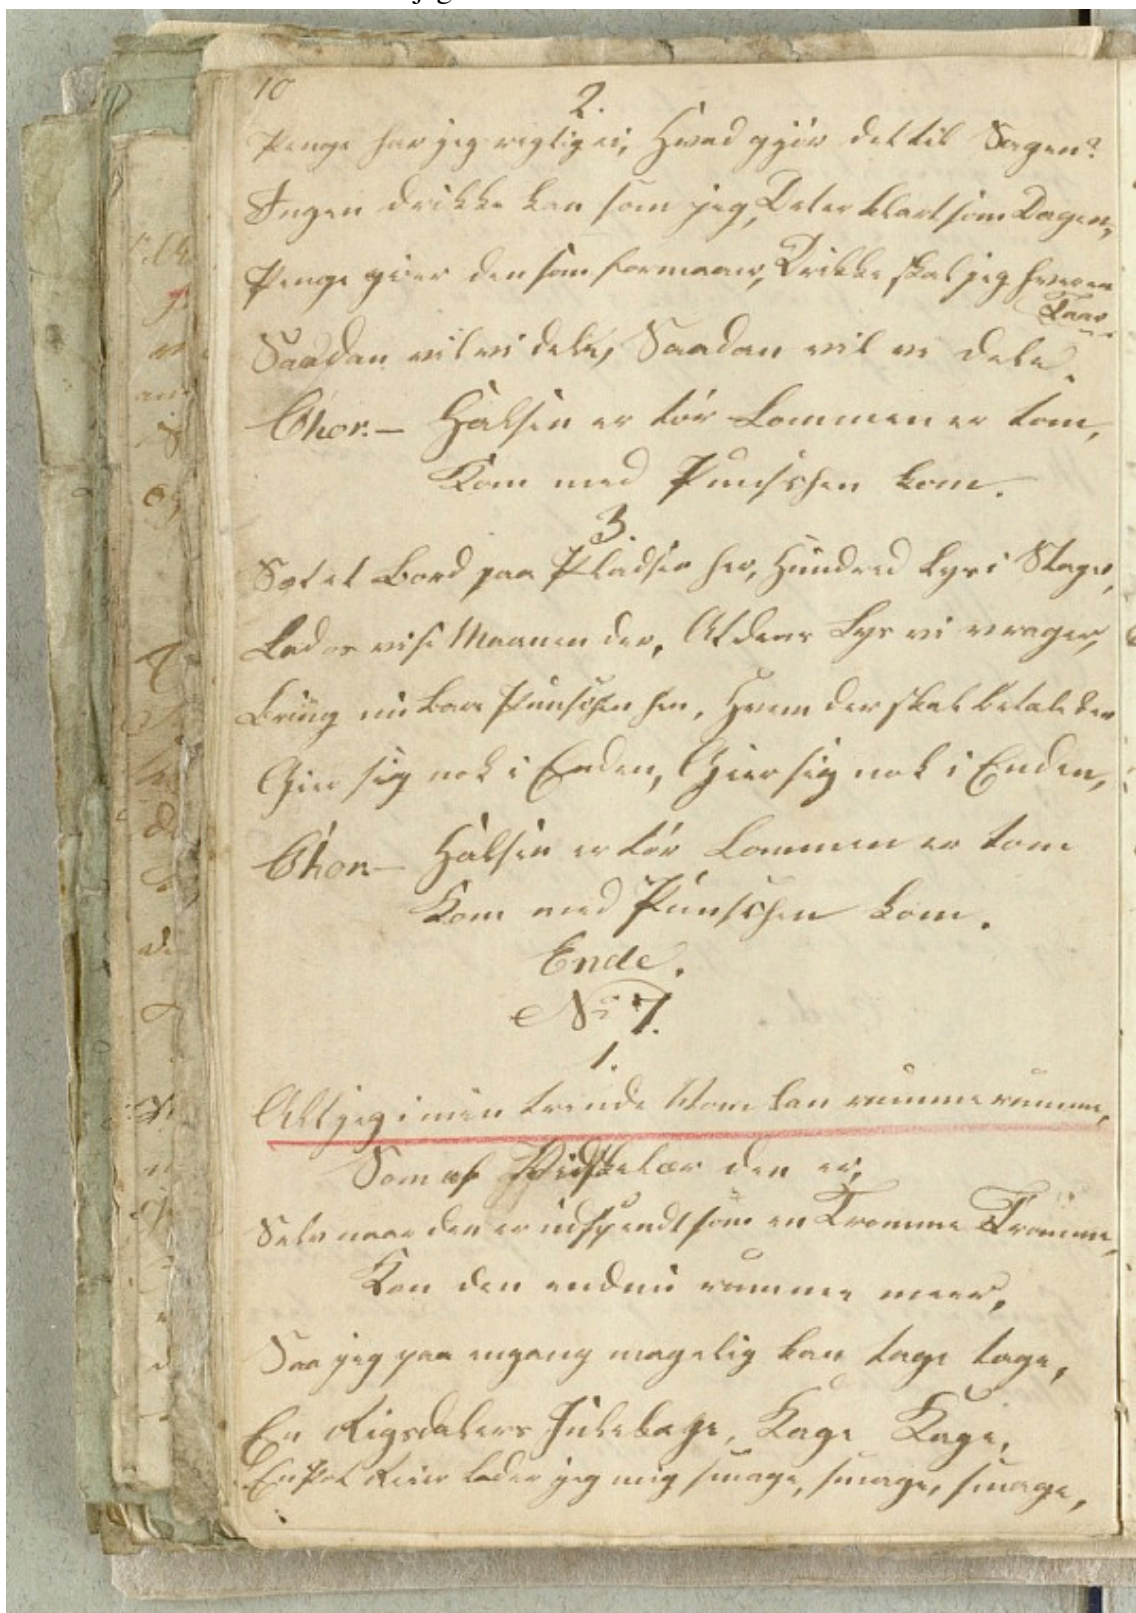 jeg
10
2.
Penge har jeg rigtig ei, Hvad gjör det til Sagen?
Ingen drikke kan som jeg, Det er klart som Dagen,
Penge giver den som formaaer, Drikke skal jeg hveren
Taar
Saadan vil vi dele, Saadan vil vi dele.
Chor. – Halsen er tör Lommen er tom,
Kom med Punschen kom.
3.
Sæt et Bord paa Pladsen her, Hundred Lys i Stager,
Lad os vise Maanen der, At dens Lys vi vrager,
Bring nu bare Punschen hen, Hvem der skal betale den
Giver sig nok i Enden, Giver sig nok i Enden,
Chor – Halsen er tör Lommen er tom
Kom med Punschen kom.
Ende.
No 7.
1.
Alt jeg i min trende Vom kan rumme rumme,
Som af Pidskelær den er,
Selv naar den er udspendt som en Tromme Tromme,
Kan den endnu rumme meer,
Saa jeg paa engang magelig kan tage tage,
En Rigsdalers Julekage, Kage Kage,
En Pot Keiser lader jeg mig smage, smage, smage,